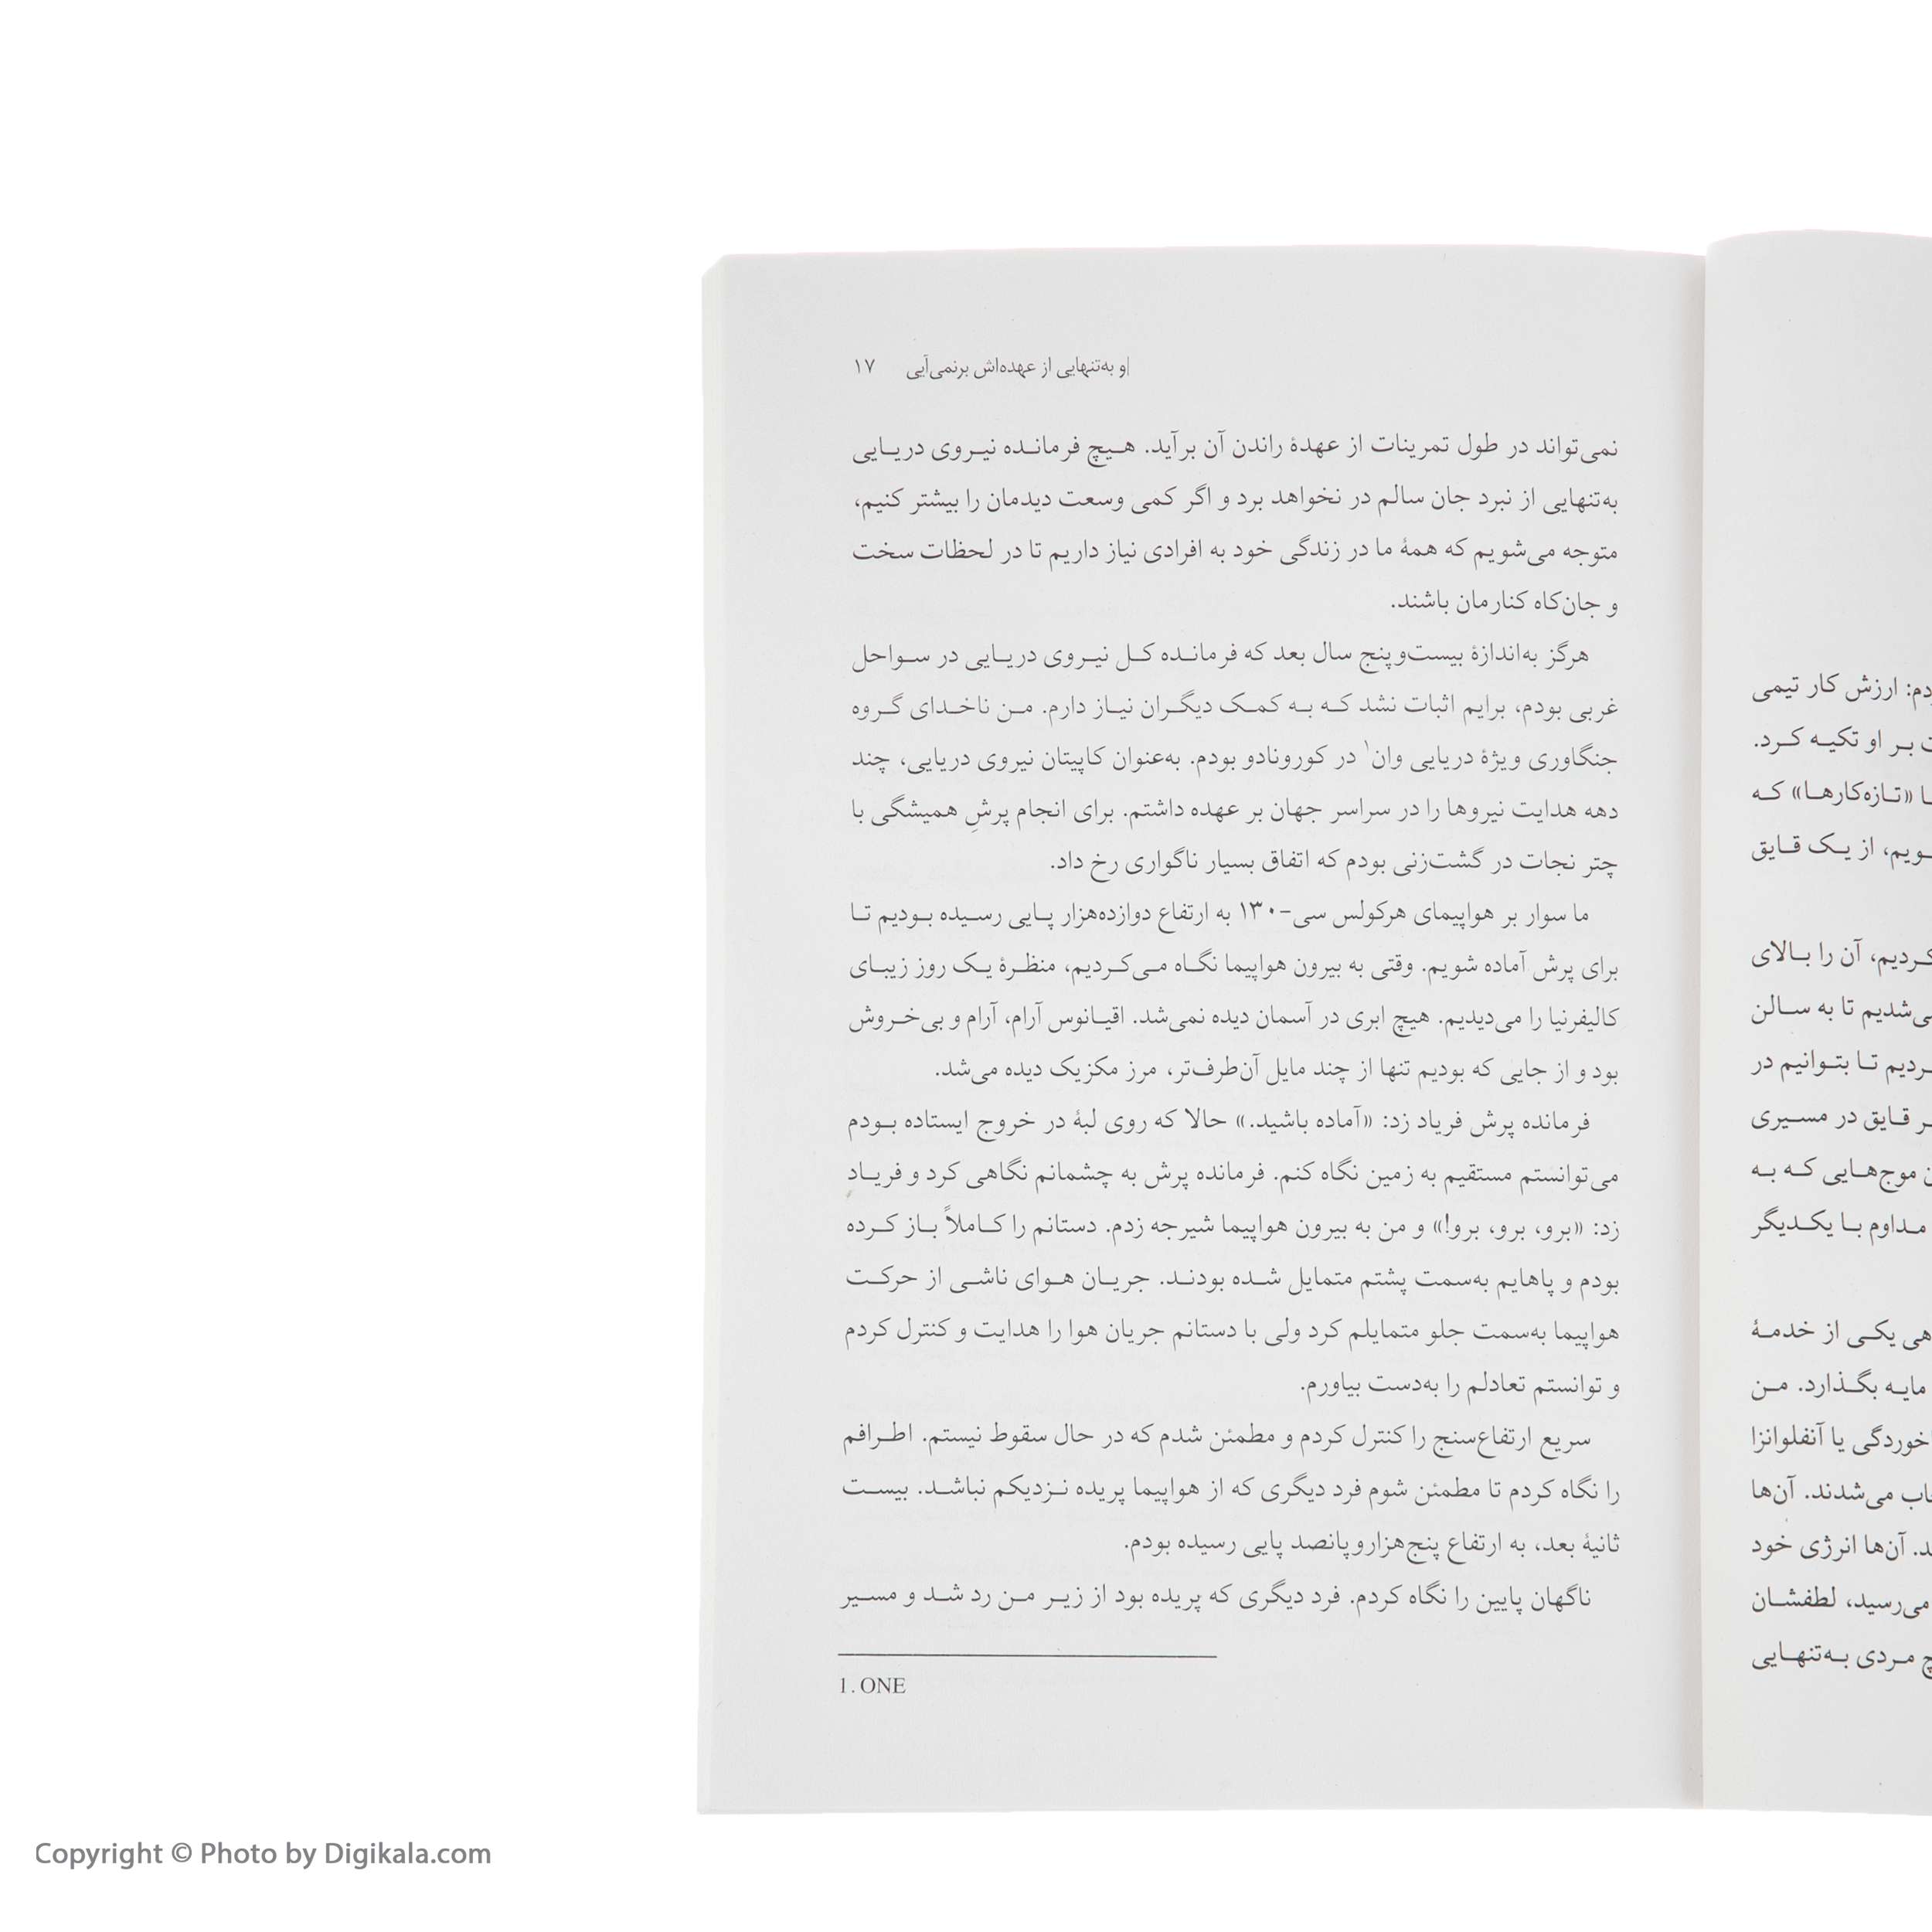 او به‌تنهایی از عهده‌اش برنمی‌آیی ۱۷
نمی‌تواند در طول تمرینات از عهدهٔ راندن آن برآید. هیچ فرمانده نیروی دریایی
به‌تنهایی از نبرد جان سالم در نخواهد برد و اگر کمی وسعت دیدمان را بیشتر کنیم،
متوجه می‌شویم که همهٔ ما در زندگی خود به افرادی نیاز داریم تا در لحظات سخت
و جان‌کاه کنارمان باشند.
هرگز به‌اندازهٔ بیست‌وپنج سال بعد که فرمانده کل نیروی دریایی در سواحل
غربی بودم، برایم اثبات نشد که به کمک دیگران نیاز دارم. من ناخدای گروه
جنگاوری ویژهٔ دریایی وان۱ در کورونادو بودم. به‌عنوان کاپیتان نیروی دریایی، چند
دهه هدایت نیروها را در سراسر جهان بر عهده داشتم. برای انجام پرشِ همیشگی با
چتر نجات در گشت‌زنی بودم که اتفاق بسیار ناگواری رخ داد.
ما سوار بر هواپیمای هرکولس سی-۱۳۰ به ارتفاع دوازده‌هزار پایی رسیده بودیم تا
برای پرش آماده شویم. وقتی به بیرون هواپیما نگاه می‌کردیم، منظرهٔ یک روز زیبای
کالیفرنیا را می‌دیدیم. هیچ ابری در آسمان دیده نمی‌شد. اقیانوس آرام، آرام و بی‌خروش
بود و از جایی که بودیم تنها از چند مایل آن‌طرف‌تر، مرز مکزیک دیده می‌شد.
فرمانده پرش فریاد زد: «آماده باشید.» حالا که روی لبهٔ در خروج ایستاده بودم
می‌توانستم مستقیم به زمین نگاه کنم. فرمانده پرش به چشمانم نگاهی کرد و فریاد
زد: «برو، برو، برو!» و من به بیرون هواپیما شیرجه زدم. دستانم را کاملاً باز کرده
بودم و پاهایم به‌سمت پشتم متمایل شده بودند. جریان هوای ناشی از حرکت
هواپیما به‌سمت جلو متمایلم کرد ولی با دستانم جریان هوا را هدایت و کنترل کردم
و توانستم تعادلم را به‌دست بیاورم.
سریع ارتفاع‌سنج را کنترل کردم و مطمئن شدم که در حال سقوط نیستم. اطرافم
را نگاه کردم تا مطمئن شوم فرد دیگری که از هواپیما پریده نزدیکم نباشد. بیست
ثانیهٔ بعد، به ارتفاع پنج‌هزاروپانصد پایی رسیده بودم.
ناگهان پایین را نگاه کردم. فرد دیگری که پریده بود از زیر من رد شد و مسیر
1. ONE
ارزش کار تیمی
بر او تکیه کرد.
«تازه‌کارها» که
از یک قایق
آن را بالای
تا به سالن
تا بتوانیم در
قایق در مسیری
موج‌هایی که به
مداوم با یکدیگر
یکی از خدمهٔ
مایه بگذارد. من
یا آنفلوانزا
می‌شدند. آن‌ها
آن‌ها انرژی خود
می‌رسید، لطفشان
مردی به‌تنهایی
Copyright © Photo by Digikala.com